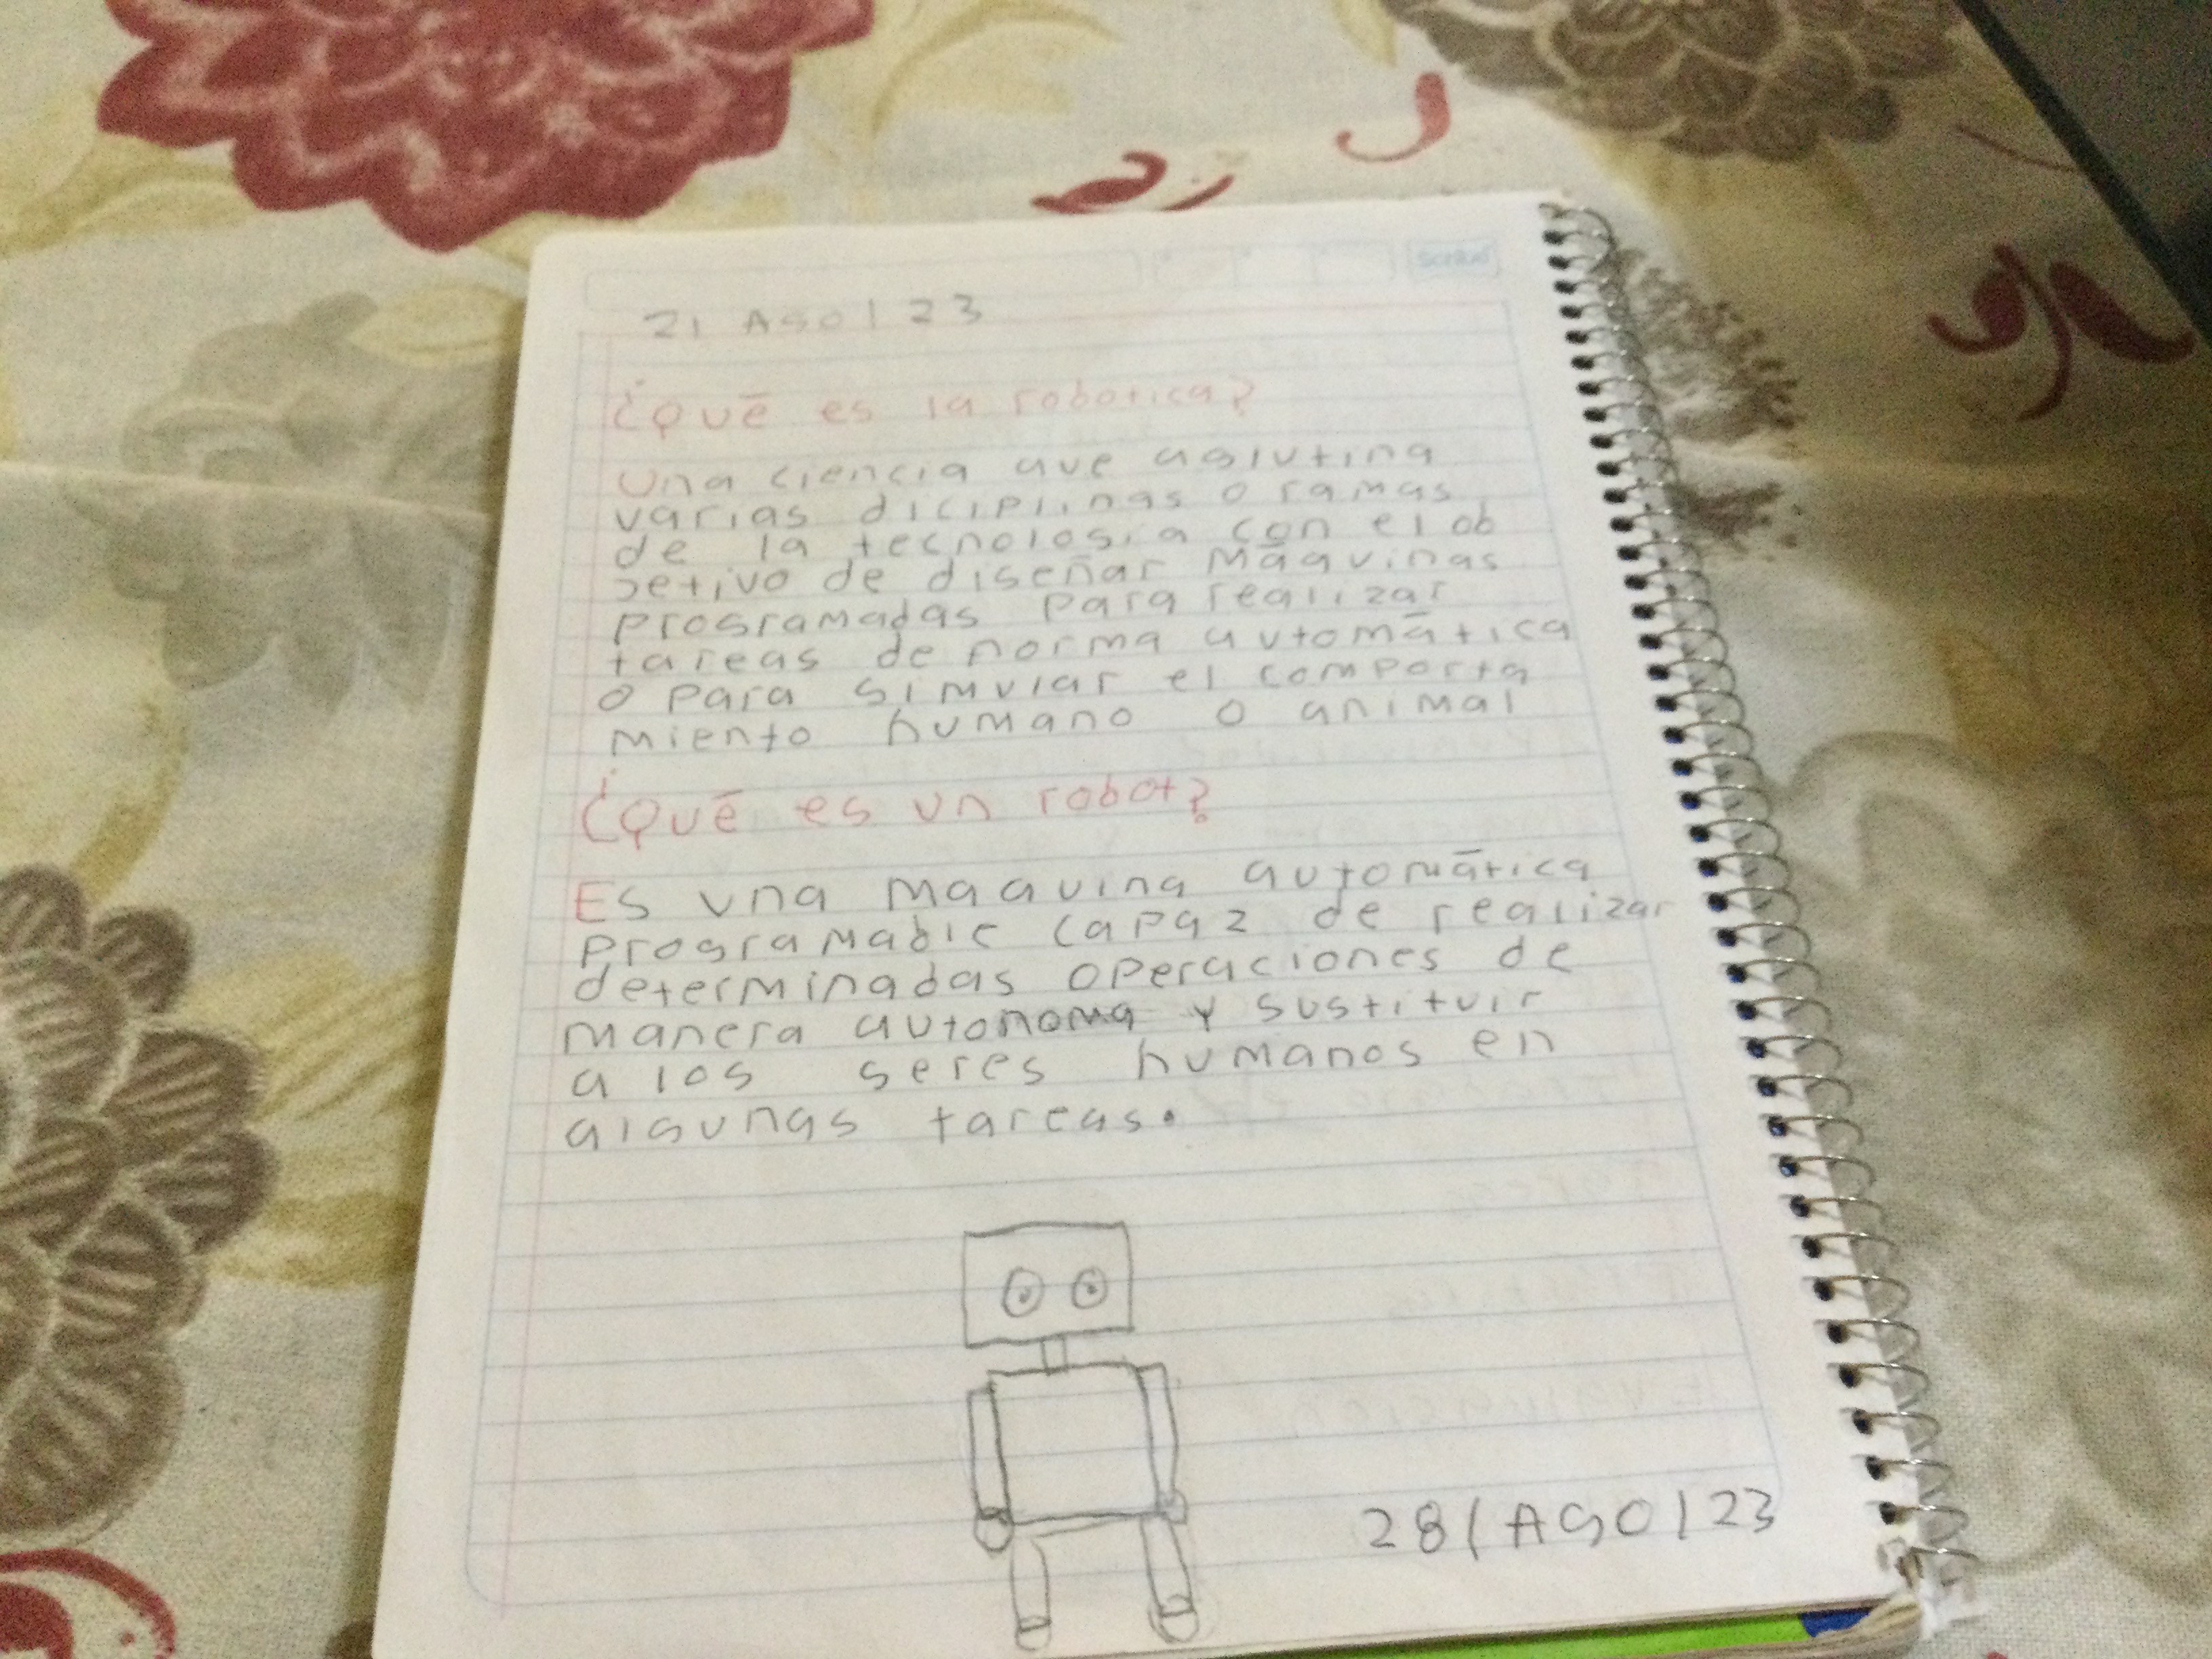 Scribe
21 AGO|23
¿Qué es la robotica?
Una ciencia que aglutina
varias diciplinas o ramas
de la tecnologia con el ob
jetivo de diseñar máquinas
programadas para realizar
tareas de norma automática
o para simular el comporta
miento humano o animal
¿Qué es un robot?
Es una maquina automática
programable capaz de realizar
determinadas operaciones de
manera autonoma y sustituir
a los seres humanos en
algunas tareas.
28/AGO/23